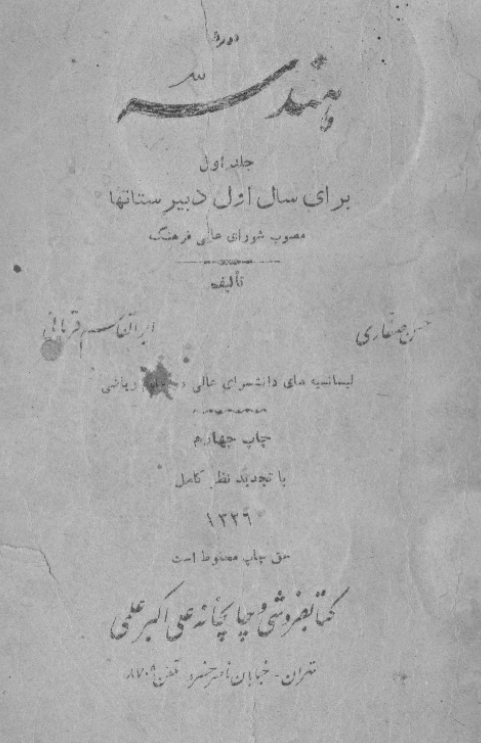 دوره
هندسه
جلد اول
برای سال اول دبیرستانها
مصوب شورای عالی فرهنگ
تألیف
حسن صفاری
ابوالقاسم قربانی
لیسانسیه های دانشسرای عالی در علوم ریاضی
چاپ چهارم
با تجدید نظر کامل
۱۳۲۶
حق چاپ محفوظ است
کتابفروشی و چاپخانه علی اکبر علمی
تهران - خیابان ناصر خسرو تلفن ۸۷۰۹